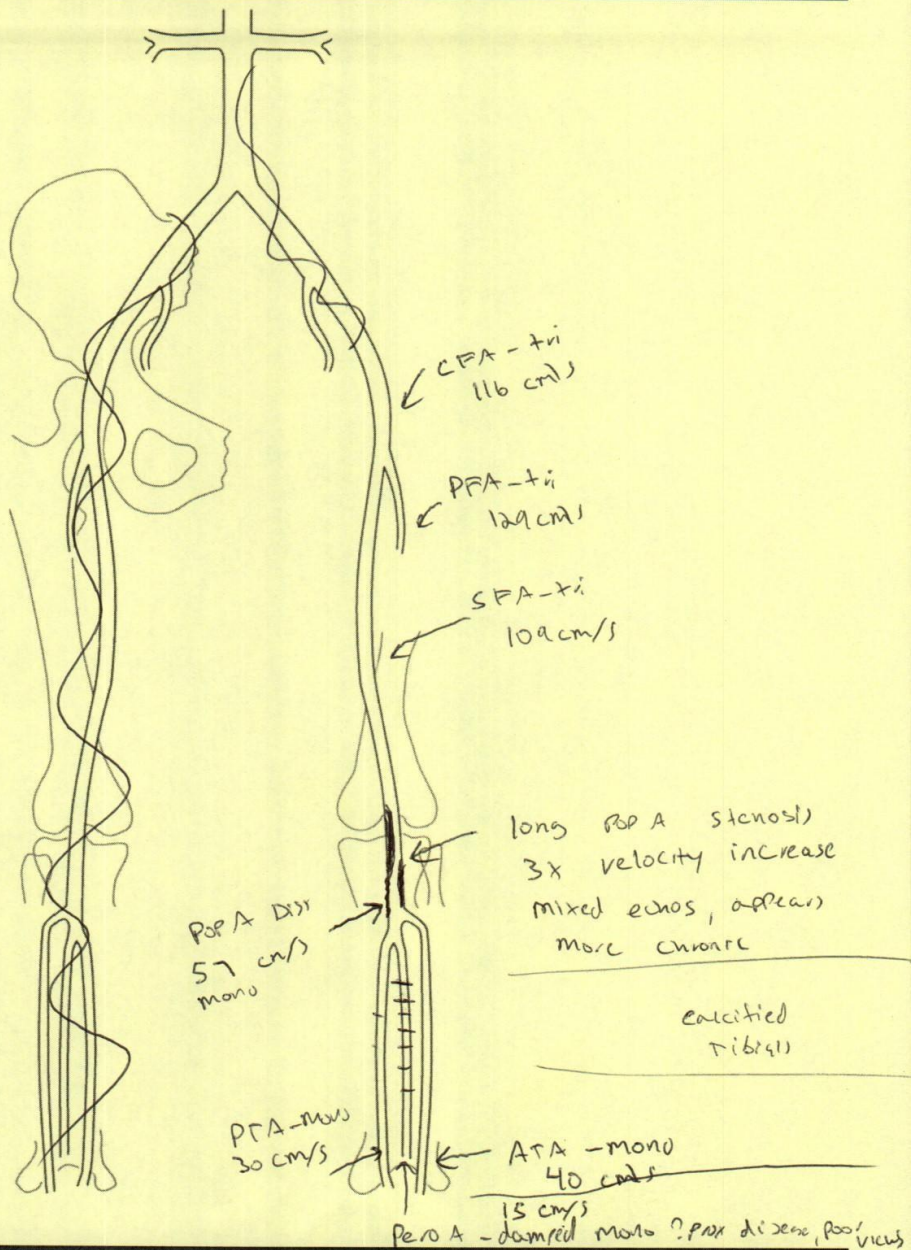 CFA - tri
116 cm/s
PFA - tri
129 cm/s
SFA - tri
109 cm/s
long POP A stenosis
3x velocity increase
mixed echos, appears
more chronic
POP A Dist
57 cm/s
mono
calcified
tibials
PTA - mono
30 cm/s
ATA - mono
40 cm/s
15 cm/s
Pero A - damped mono ? prox disease, poor views